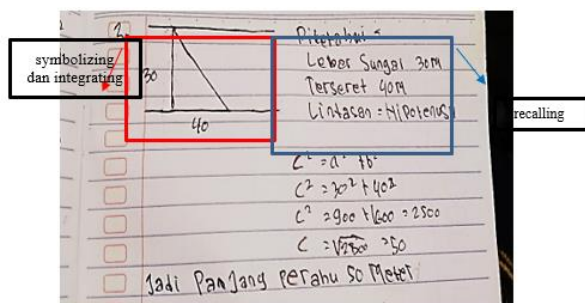 2.
symbolizing
dan integrating
30
40
Diketahui =
Lebar Sungai 30 M
Terseret 40M
Lintasan = Hipotenusa
recalling
C² = a² + b²
C² = 30² + 40²
C² = 900 + 1600 = 2500
C = √2500 = 50
Jadi Panjang perahu 50 Meter